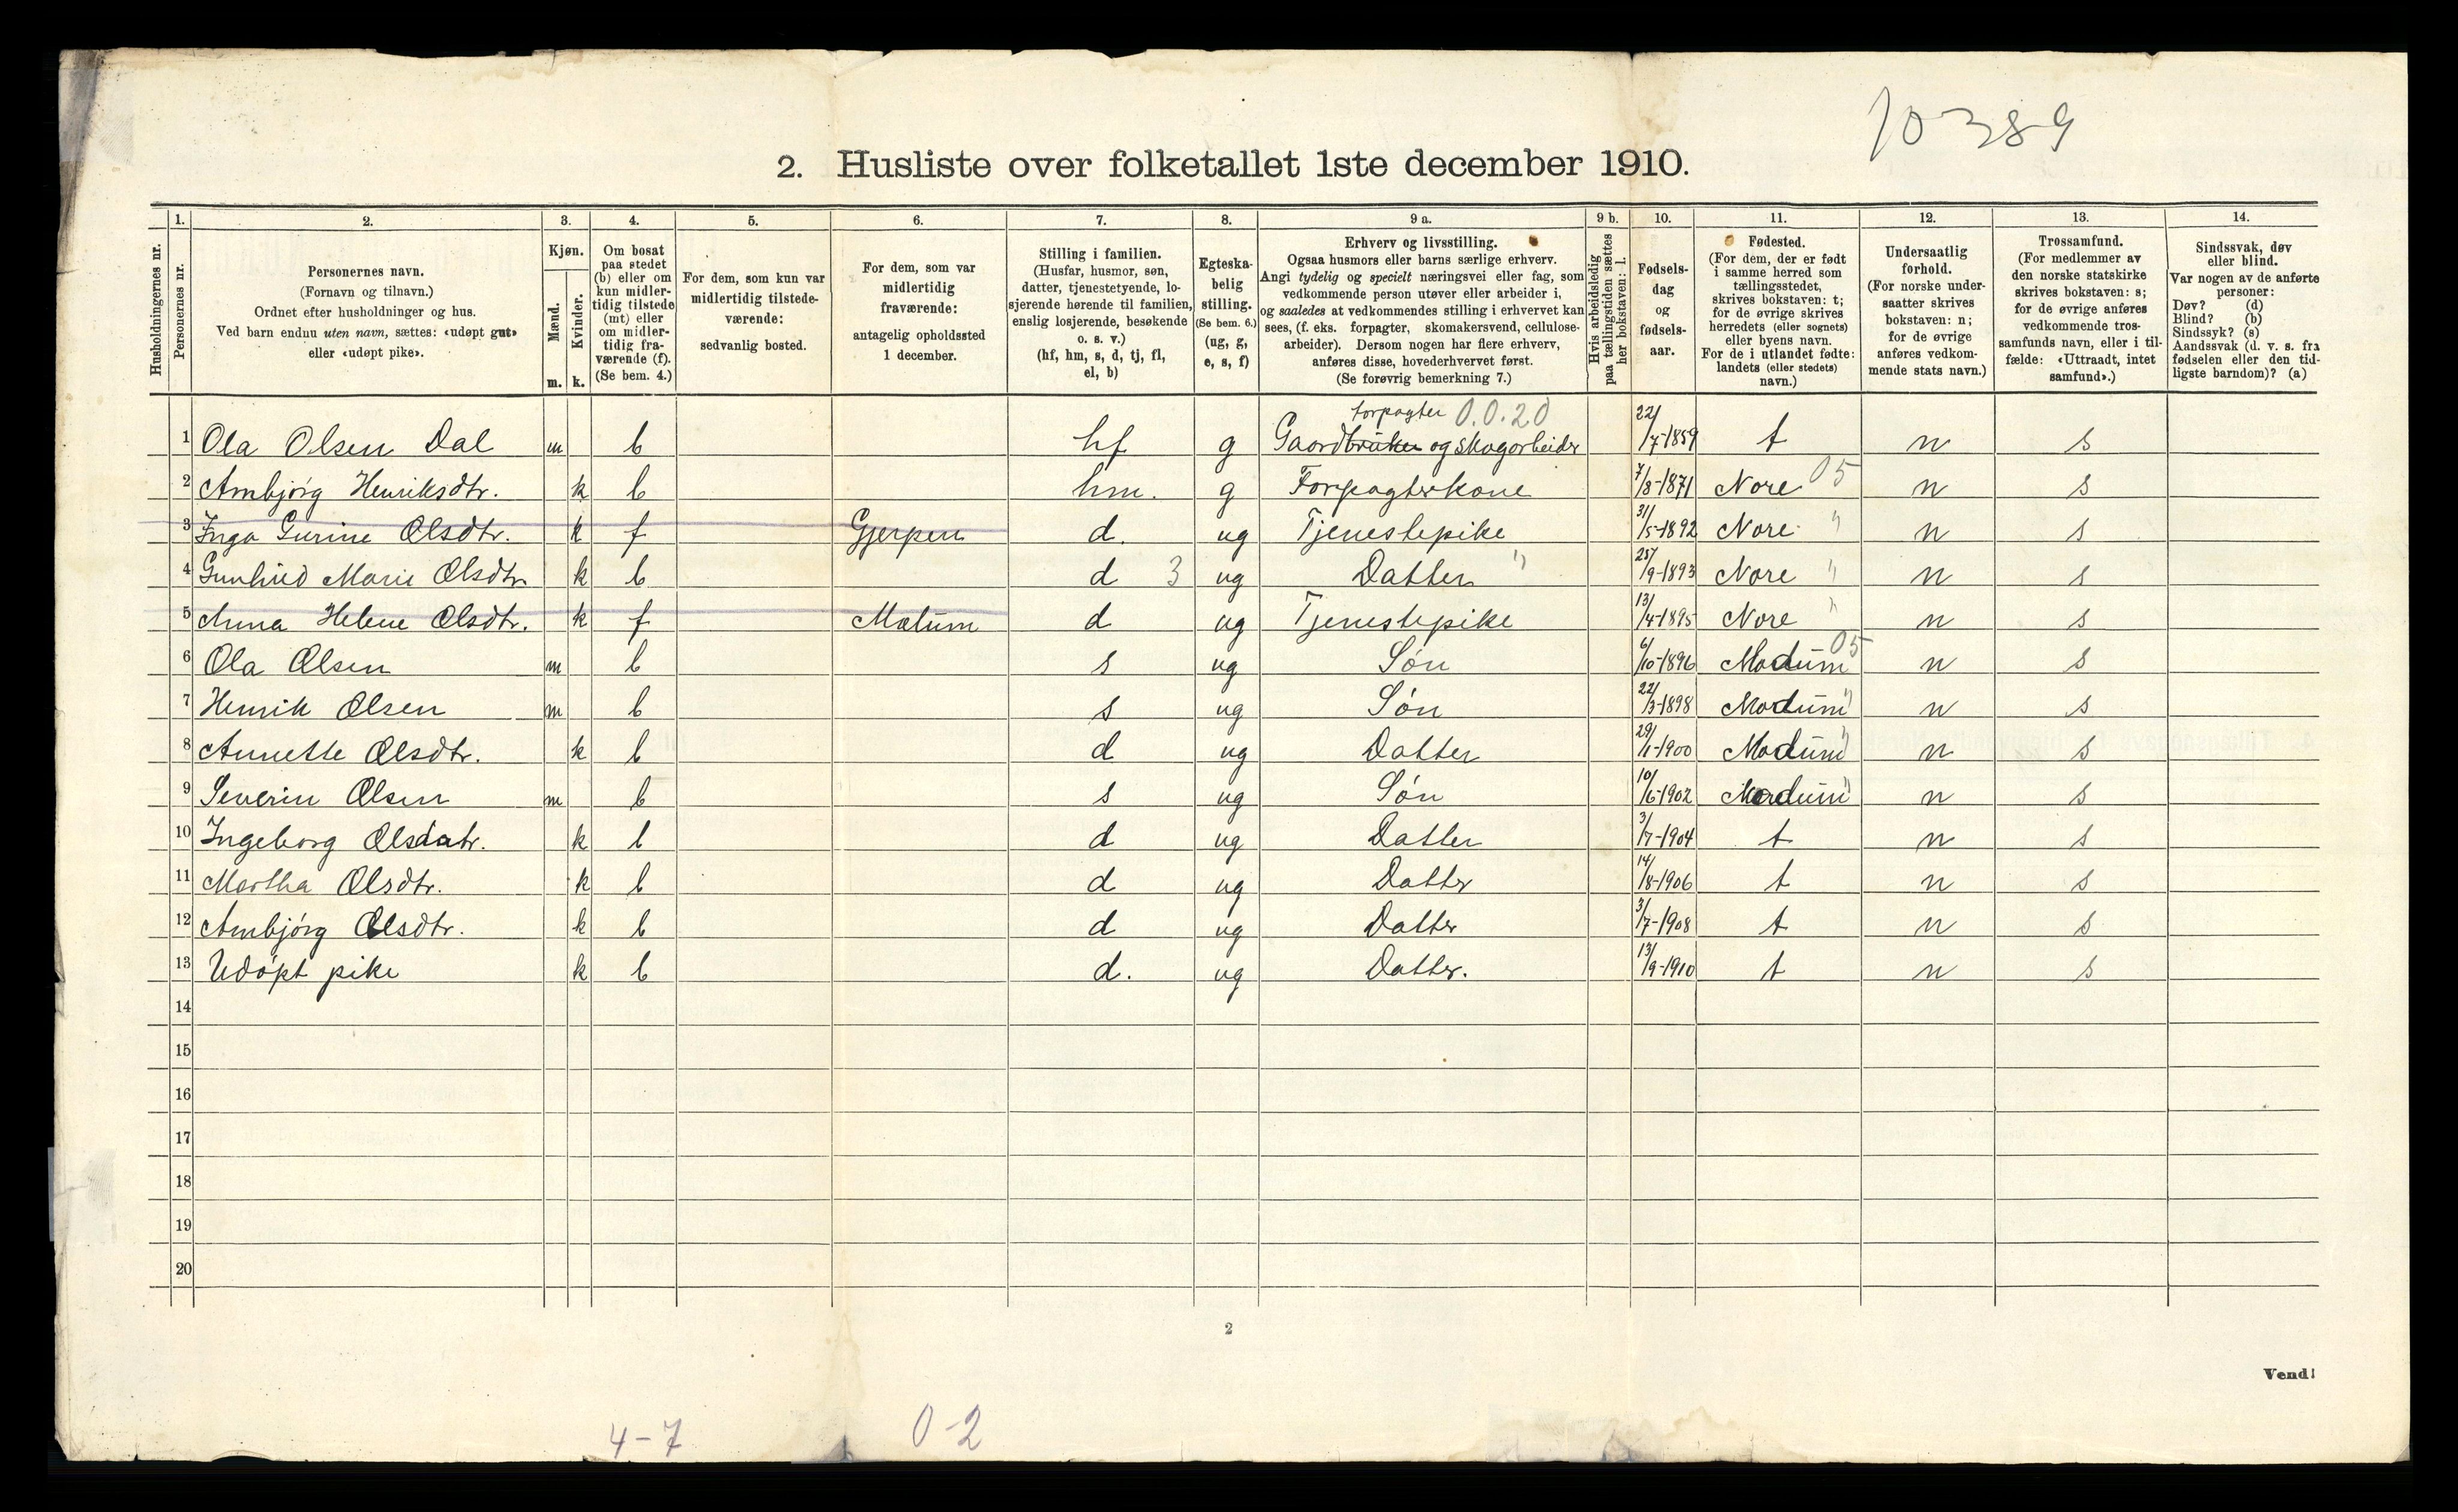 10-389
2. Husliste over folketallet 1ste december 1910.
Husholdningernes nr.
1. Personernes nr.
2. Personernes navn.
(Fornavn og tilnavn.)
Ordnet efter husholdninger og hus.
Ved barn endnu uten navn, sættes: «udøpt gut»
eller «udøpt pike».
3. Kjøn.
Mænd. Kvinder.
m. k.
4. Om bosat
paa stedet
(b) eller om
kun midler-
tidig tilstede
(mt) eller
om midler-
tidig fra-
værende (f).
(Se bem. 4.)
5. For dem, som kun var
midlertidig tilstede-
værende:
sedvanlig bosted.
6. For dem, som var
midlertidig
fraværende:
antagelig opholdssted
1 december.
7. Stilling i familien.
(Husfar, husmor, søn,
datter, tjenestetyende, lo-
sjerende hørende til familien,
enslig losjerende, besøkende
o. s. v.)
(hf, hm, s, d, tj, fl,
el, b)
8. Egteska-
belig
stilling.
(Se bem. 6.)
(ug, g,
e, s, f)
9 a. Erhverv og livsstilling.
Ogsaa husmors eller barns særlige erhverv.
Angi tydelig og specielt næringsvei eller fag, som
vedkommende person utøver eller arbeider i,
og saaledes at vedkommendes stilling i erhvervet kan
sees, (f. eks. forpagter, skomakersvend, cellulose-
arbeider). Dersom nogen har flere erhverv,
anføres disse, hovederhvervet først.
(Se forøvrig bemerkning 7.)
9 b. Hvis arbeidsledig
paa tællingstiden sættes
her bokstaven: l.
10. Fødsels-
dag
og
fødsels-
aar.
11. Fødested.
(For dem, der er født
i samme herred som
tællingsstedet,
skrives bokstaven: t;
for de øvrige skrives
herredets (eller sognets)
eller byens navn.
For de i utlandet fødte:
landets (eller stedets)
navn.)
12. Undersaatlig
forhold.
(For norske under-
saatter skrives
bokstaven: n;
for de øvrige
anføres vedkom-
mende stats navn.)
13. Trossamfund.
(For medlemmer av
den norske statskirke
skrives bokstaven: s;
for de øvrige anføres
vedkommende tros-
samfunds navn, eller i til-
fælde: «Uttraadt, intet
samfund».)
14. Sindssvak, døv
eller blind.
Var nogen av de anførte
personer:
Døv? (d)
Blind? (b)
Sindssyk? (s)
Aandssvak (d. v. s. fra
fødselen eller den tid-
ligste barndom)? (a)
forpagter 0.0.20
1 Ola Olsen Dal m b hf g Gaardbruker og skogarbeider 22/7-1859 t n s
2 Ambjørg Henriksdtr. k b hm. g Forpagterkone 7/8-1871 Nore 05 n s
3 Inga Gurine Olsdtr. k f Gjerpen d. ug Tjenestepike 31/5-1892 Nore " n s
4 Gunhild Marie Olsdtr. k b d 3 ug Datter " 25/9-1893 Nore " n s
5 Anna Helene Olsdtr. k f Mælum d ug Tjenestepike 13/4-1895 Nore " n s
6 Ola Olsen m b s ug Søn 6/10-1896 Modum 05 n s
7 Henrik Olsen m b s ug Søn 22/3-1898 Modum " n s
8 Annette Olsdtr. k b d ug Datter 29/1-1900 Modum " n s
9 Severin Olsen m b s ug Søn 10/6-1902 Modum " n s
10 Ingeborg Olsdatr. k b d ug Datter 3/7-1904 t n s
11 Martha Olsdtr. k b d ug Datter 14/8-1906 t n s
12 Ambjørg Olsdtr. k b d ug Datter 3/7-1908 t n s
13 Udøpt pike k b d. ug Datter. 13/9-1910 t n s
14
15
16
17
18
19
20
2
Vend!
4-7 0-2